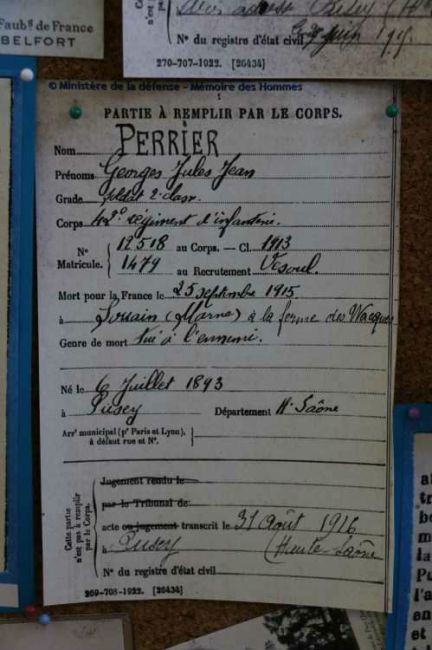 Faubg de France
BELFORT
N° du registre d'état civil
270-707-1922. [26434]
© Ministère de la défense - Mémoire des Hommes
PARTIE À REMPLIR PAR LE CORPS.
Nom PERRIER
Prénoms Georges Jules Jean
Grade soldat 2e class.
Corps 42e régiment d'infanterie.
N° Matricule. { 12518 au Corps. — Cl. 1913
1479 au Recrutement Vesoul.
Mort pour la France le 25 septembre 1915
à Souain (Marne) à la ferme des Wacques
Genre de mort Tué à l'ennemi.
Né le 6 Juillet 1893
à Pusey Département Hte Saône
Arrt municipal (pr Paris et Lyon),
à défaut rue et N°.
Cette partie
n'est pas à remplir
par le Corps.
Jugement rendu le
par le Tribunal de
acte ou jugement transcrit le 31 Août 1916
à Pusey (Haute-Saône
N° du registre d'état civil
269-708-1922. [26434]